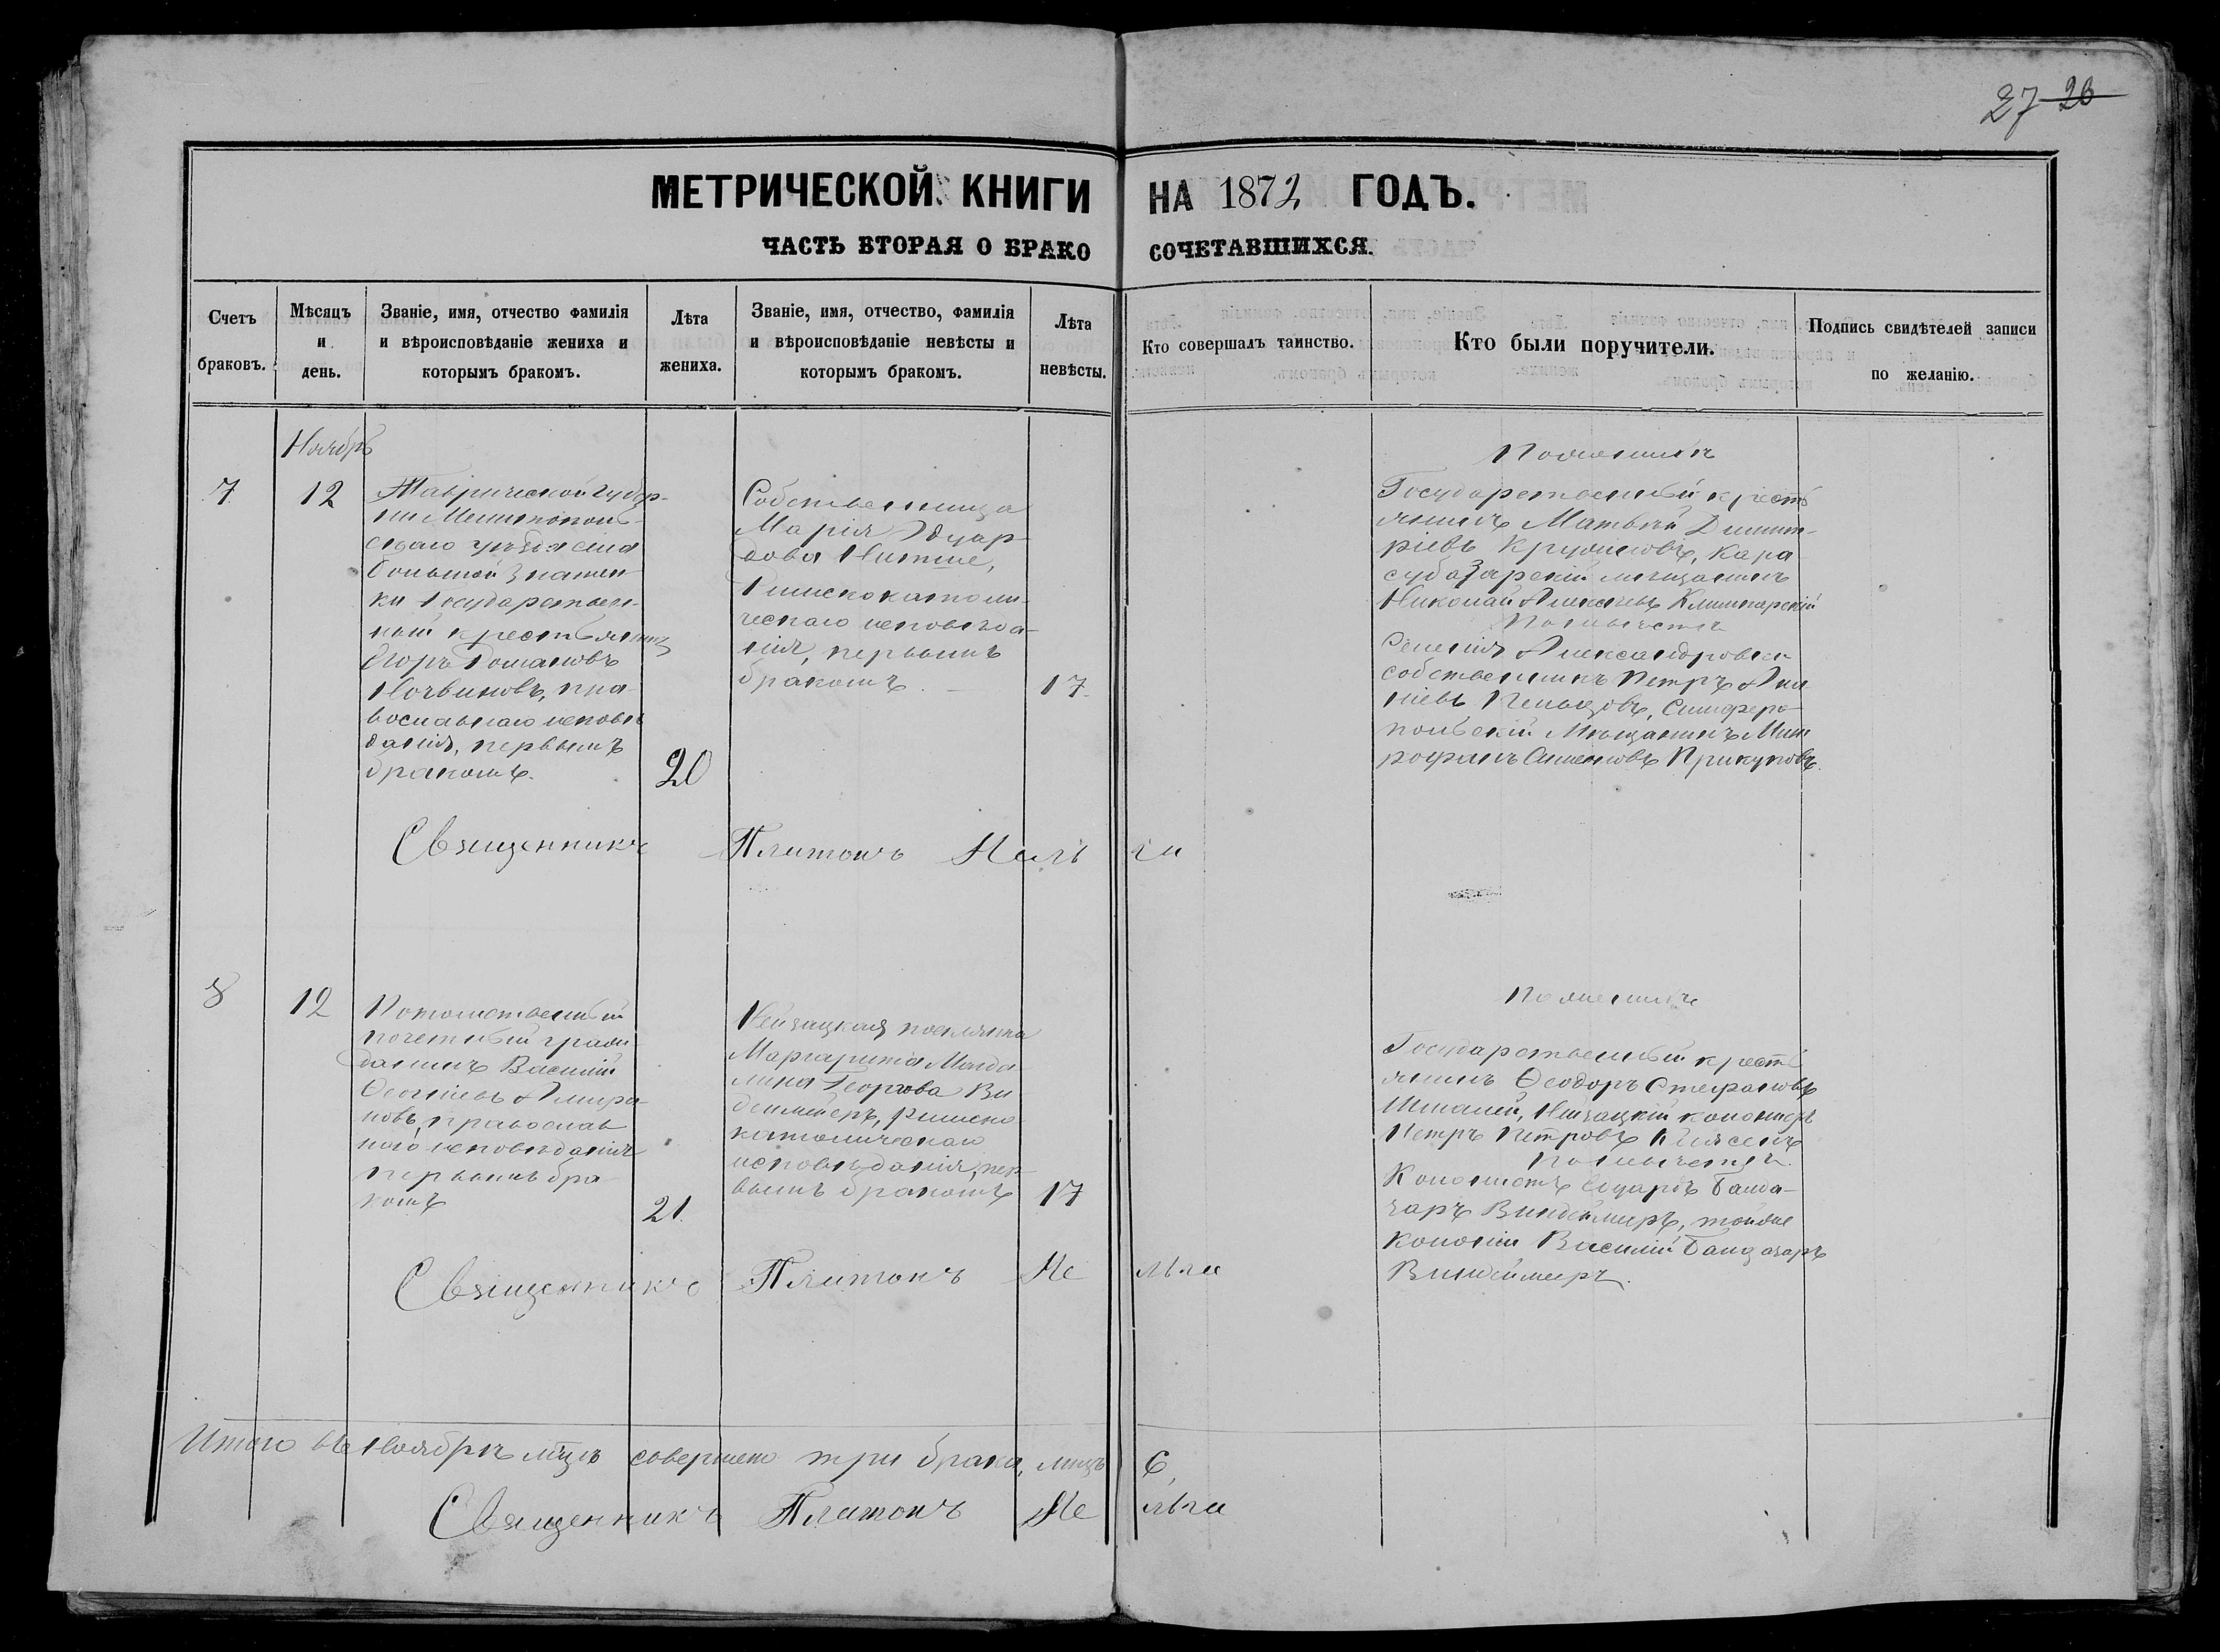 27 26
МЕТРИЧЕСКОЙ КНИГИ НА 1872 ГОДЪ.
ЧАСТЬ ВТОРАЯ О БРАКОСОЧЕТАВШИХСЯ.
Счетъ
браковъ.
Мѣсяцъ
и
день.
Званіе, имя, отчество фамилія
и вѣроисповѣданіе жениха и
которымъ бракомъ.
Лѣта
жениха.
Званіе, имя, отчество, фамилія
и вѣроисповѣданіе невѣсты и
которымъ бракомъ.
Лѣта
невѣсты.
Кто совершалъ таинство.
Кто были поручители.
Подпись свидѣтелей записи
по желанію.
Ноябрь
7
12
Таврической губер-
ніи Мелитополь-
скаго уѣзда села
большой Знамен-
ки Государствен-
ный крестьянинъ
Егоръ Романовъ
пра-
вославнаго исповѣ
данія, первымъ
бракомъ.
20
Собственница
Марія Эдуар-
дова
Римскокатоли-
ческаго исповѣда-
нія, первымъ
бракомъ.
17
По женихѣ
Государственный кресть
янинъ Матвѣй Димит-
ріевъ Кара-
субазарскій мѣщанинъ
Николай Алексѣевъ
По невѣстѣ
Селенія Александровки
собственникъ Петръ
Симферо-
польскій Мѣщанинъ Мит
рофанъ
Священникъ Платонъ
8
12
Потомственный
почетный граж-
данинъ Василій
православ
наго исповѣданія
первымъ бра-
комъ
21.
Нейзацкая поселянка
Маргарита Магда-
лина Георгова Ви
римско
католическаго
исповѣданія, пер-
вымъ бракомъ
17
По женихѣ
Государственный кресть
янинъ Ѳеодоръ Стефановъ
Нейзацкій колонистъ
Петръ Петровъ
По невѣстѣ
Колонистъ Эдуардъ Балта-
заръ Виндемиръ, тойже
колоніи Василій Балтазаръ
Виндемиръ.
Священникъ Платонъ
Итого въ Ноябрѣ мѣсяцѣ совершено три брака, лицъ 6,
Священникъ Платонъ